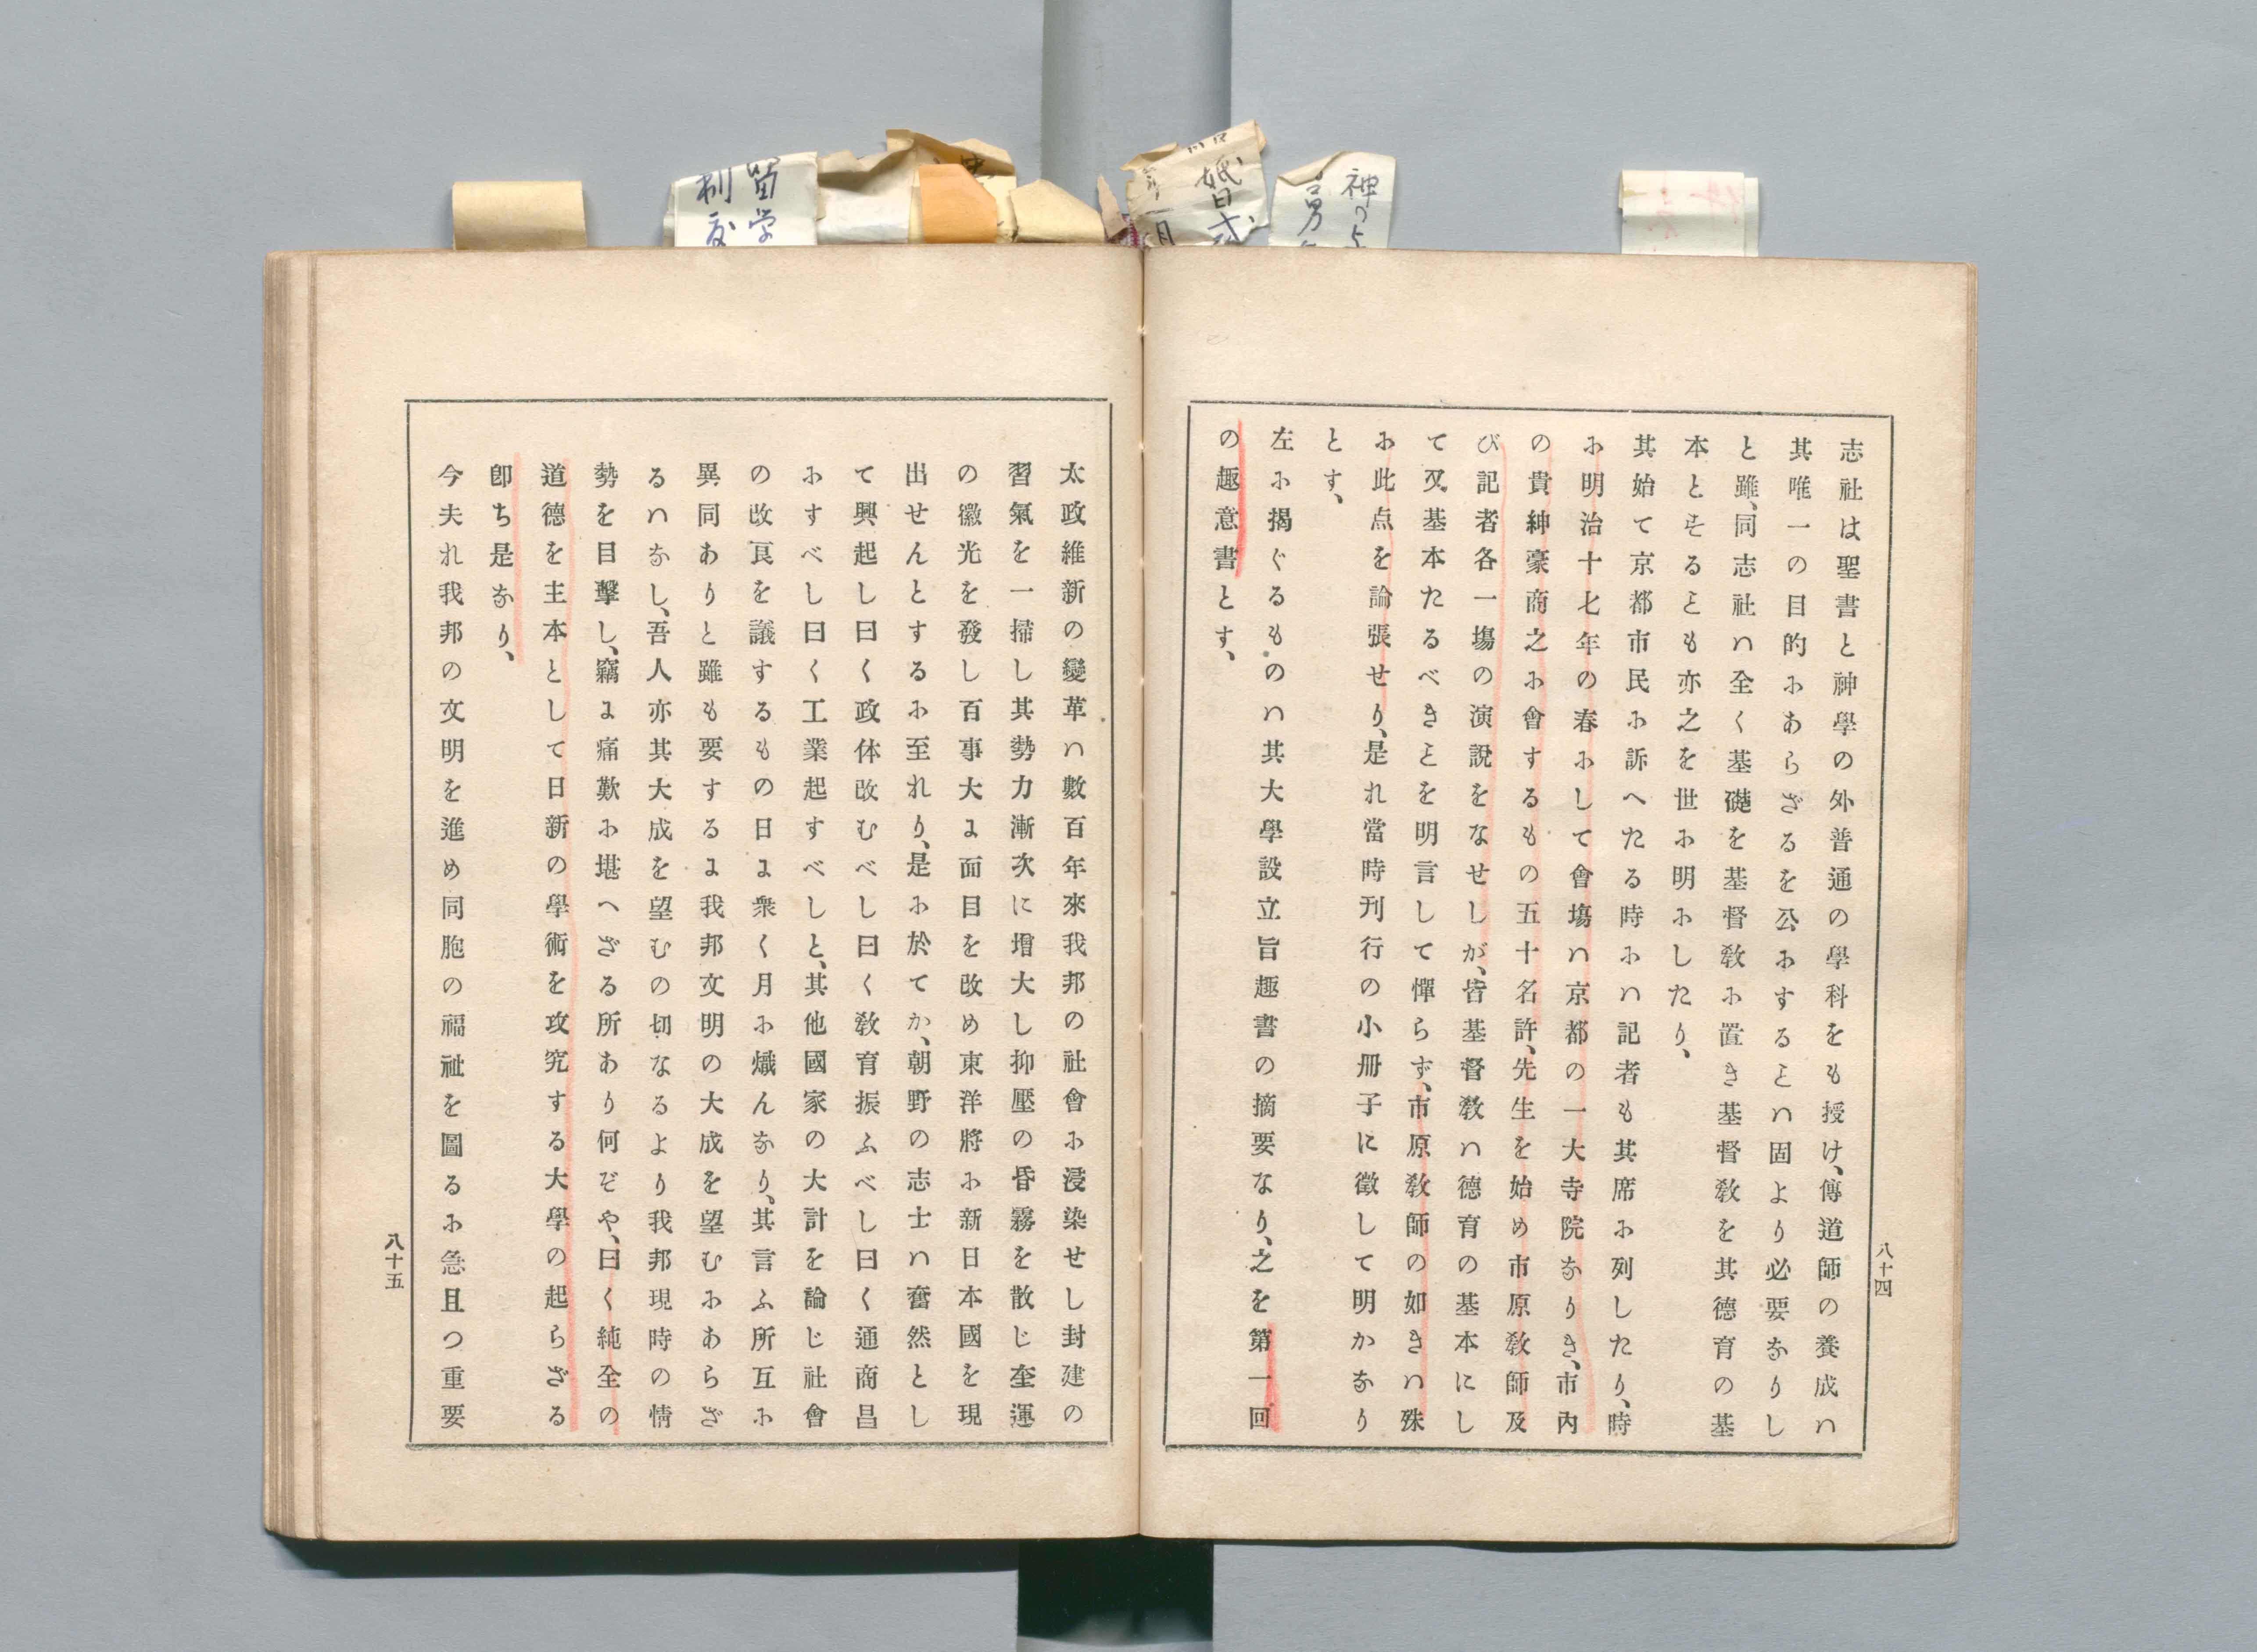 志社は聖書と神學の外普通の學科をも授け、傳道師の養成ハ
其唯一の目的にあらざるを公にするとハ固より必要なりし
と雖、同志社ハ全く基礎を基督敎に置き基督敎を其德育の基
本とするヿも亦之を世に明にしたり、
其始て京都市民に訴へたる時にハ記者も其席に列したり、時
に明治十七年の春にして會塲ハ京都の一大寺院なりき、市內
の貴紳豪商之に會するもの五十名許、先生を始め市原敎師及
び記者各一塲の演說をなせしが、皆基督敎ハ德育の基本にし
て又基本たるべきヿを明言して憚らず、市原敎師の如きハ殊
に此点を論張せり、是れ當時刊行の小冊子に徵して明かなり
とす、
左に揭ぐるものハ其大學設立旨趣書の摘要なり、之を第一回
の趣意書とす、
八十四
太政維新の變革ハ數百年來我邦の社會に浸染せし封建の
習氣を一掃し其勢力漸次に增大し抑壓の昏霧を散じ奎運
の徽光を發し百事大に面目を改め東洋將に新日本國を現
出せんとするに至れり、是に於てか、朝野の志士ハ奮然とし
て興起し曰く政体改むべし曰く敎育振ふべし曰く通商昌
にすべし曰く工業起すべしと、其他國家の大計を論じ社會
の改良を議するもの日に衆く月に熾んなり、其言ふ所互に
異同ありと雖も要するに我邦文明の大成を望むにあらざ
るハなし、吾人亦其大成を望むの切なるより我邦現時の情
勢を目擊し、竊に痛歎に堪へざる所あり何ぞや、曰く純全の
道德を主本として日新の學術を攻究する大學の起らざる
卽ち是なり、
今夫れ我邦の文明を進め同胞の福祉を圖るに急且つ重要
八十五
留学
制度
婚式
神のよ